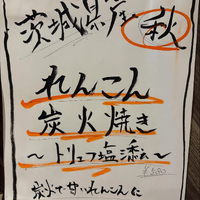 茨城県産 秋
れんこん
炭火焼き
～トリュフ塩添え～
炭火で甘いれんこんに